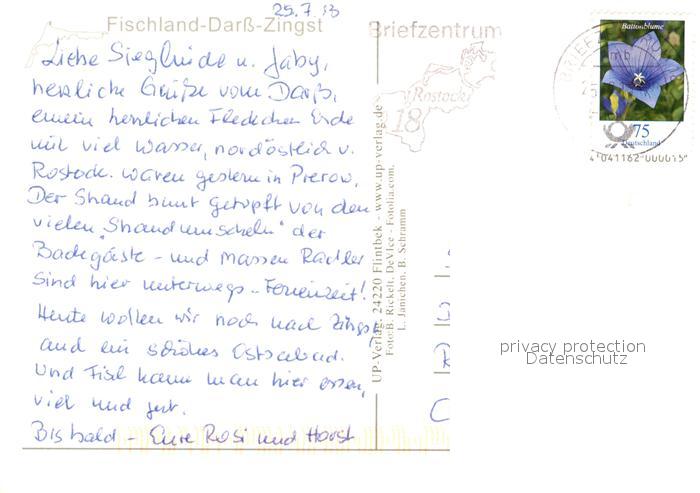 25.7.13
Fischland-Darß-Zingst
Liebe Sieglinde u. Gaby,
herzliche Grüße vom Darß,
einem herrlichen Fleckchen Erde
mit viel Wasser, nordöstlich v.
Rostock. Waren gestern in Prerow,
Der Strand bunt getupft von den
vielen „Strandmuscheln" der
Badegäste - und Massen Radler
sind hier unterwegs - Ferienzeit!
Heute wollen wir noch nach Zingst,
auch ein schönes Ostseebad.
Und Fisch kann man hier essen,
viel und gut.
Bis bald - Eure Rosi und Horst
UP-Verlag, 24220 Flintbek - www.up-verlag.de
Foto: B. Rickelt, DeVIce - Fotolia.com,
L. Janichen, B. Schramm
Briefzentrum
Rostock
18
Ballonblume
75
Deutschland
4·041162·000015
privacy protection
Datenschutz